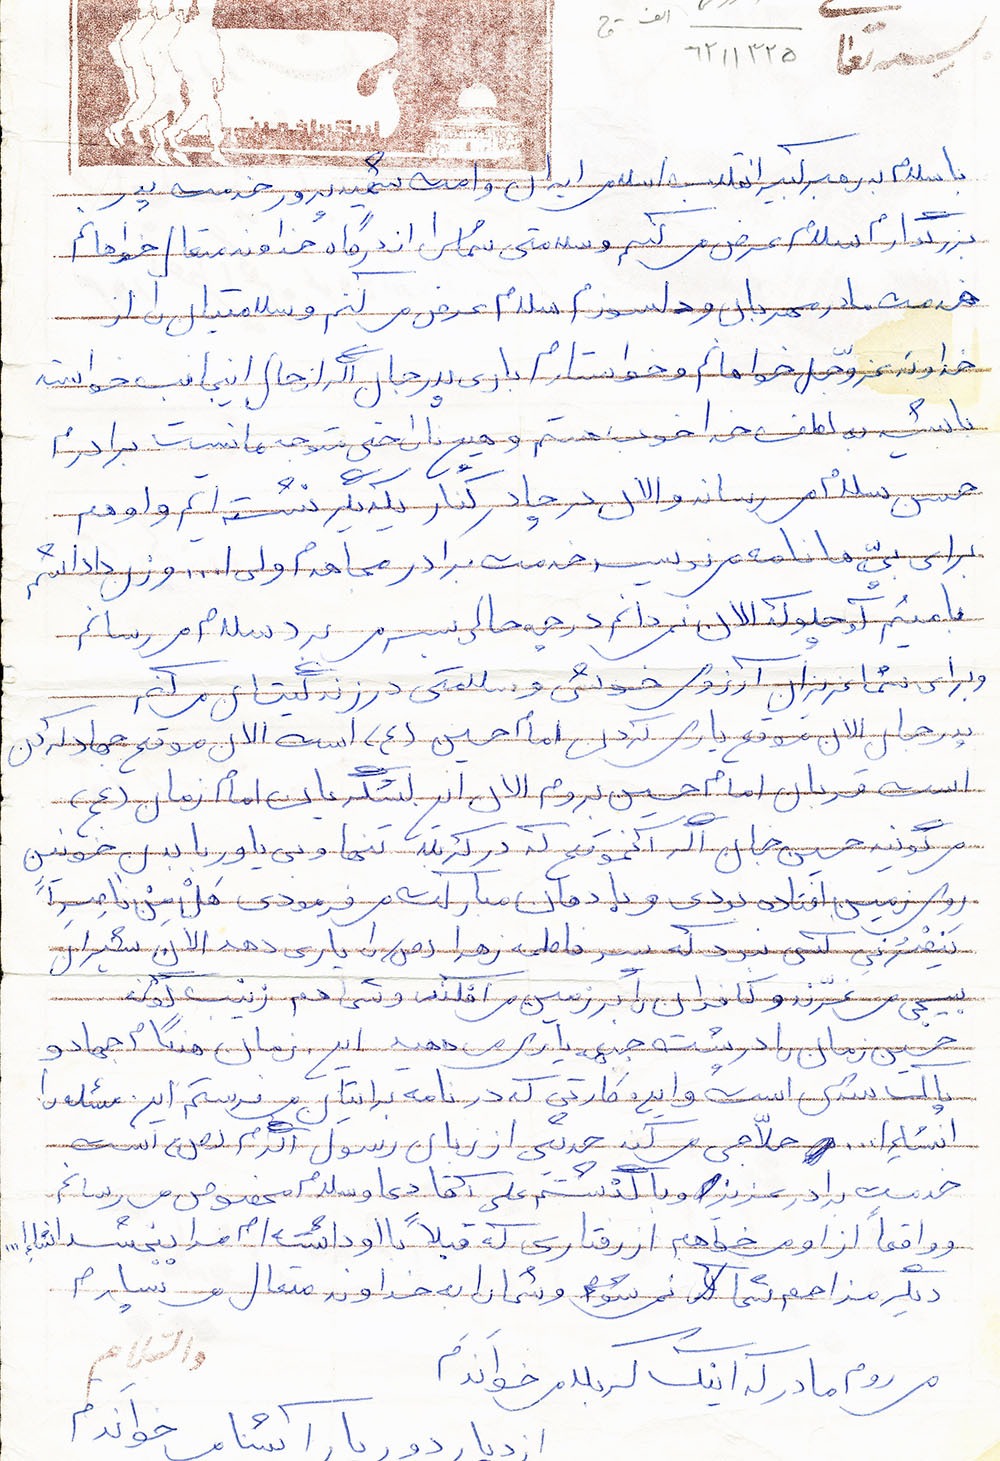 بسمه تعالی
الف
۶۲/۱۱/۳۲۵
با سلام به رهبر کبیر انقلاب اسلامی ایران و امت شهید پرور خدمت پدر
بزرگوارم سلام عرض می کنم و سلامتی شما را از درگاه خداوند متعال خواهانم
خدمت مادر مهربان و دلسوزم سلام عرض می کنم و سلامتیتان را از
خداوند عزوجل خواهانم و خواستارم باری پدر جان اگر از حال اینجانب خواسته
باشید به لطف خدا خوب هستم و هیچ ناراحتی متوجه ما نیست برادرم
حسن سلام می رساند و الان در چادر کنار یکدیگر نشسته ایم و او هم
برای بچّه ها نامه می نویسد خدمت برادر مجاهدم ولی ا... و زن داداشم
با میثم کوچلو که الان نمی دانم در چه حالی بسر می برد سلام می رسانم
و برای شما عزیزان آرزوی خوشی و سلامتی در زندگیتان می کنم
پدر جان الان موقع یاری کردن امام حسین (ع) است الان موقع جهاد کردن
است قربان امام حسین بروم الان این لشگریان امام زمان (عج)
می گویند حسین جان اگر آنموقع که در کربلا تنها و بی یاور با بدن خونین
روی زمین افتاده بودی و با دهان مبارکت می فرمودی هَل مِن ناصِراً
یَنصُرنی کسی نبود که پسر فاطمه زهرا (ص) را یاری دهد الان شیران
بسیجی می غرّند و کافران را بر زمین می افکنند و شما هم زینب گونه
حسین زمان را در پشت جبهه یاری می دهید این زمان هنگام جهاد و
پاک شدن است و این کارتی که در نامه برایتان می فرستم این مسئله را
انشاءا... حلاّجی می کند حدیثی از زبان رسول اکرم (ص) است
خدمت برادر عزیزم و با گذشتم علی آقا دعا و سلام مخصوص می رسانم
و واقعاً از او می خواهم از رفتاری که قبلاً با او داشته ام مرا ببخشد انشاءا...
دیگر مزاحم شما نمی شوم و شما را به خداوند متعال می سپارم
والسّلام
می روم مادر که اینک کربلا می خوانَدَم
از دیار دور یار آشنا می خوانَدَم